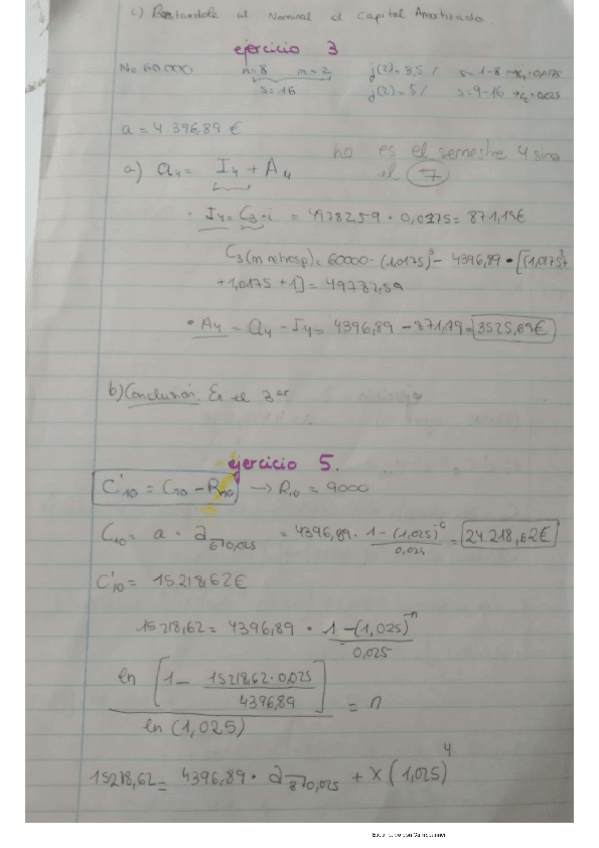 c) Restandole al Nominal el Capital Amortizado.
ejercicio 3
N= 60000 n=8 m=2 j(2)=3,5% s=1-8 → i₁=0,0175
s=16 j(2)=5% s=9-16 i₂=0,025
a = 4 396,89 €
no es el semestre 4 sino
a) a₄ = I₄ + A₄ el 7
· I₄ = C₃ · i = 49782,59 · 0,0175 = 871,19€
C₃ (m retrosp) = 60000 · (1,0175)³ - 4396,89 · [(1,0175)²+
+1,0175 +1] = 49782,59
· A₄ = a₄ - I₄ = 4396,89 - 871,19 = 3525,69€
b) Conclusión. Es el 3er
ejercicio 5.
C'10 = C10 - R10 → R10 = 9000
C10 = a · a 6¬0,025 = 4396,89 · 1 - (1,025)⁻⁶ / 0,025 = 24.218,62€
C'10 = 15218,62€
15218,62 = 4396,89 · 1 - (1,025)⁻ⁿ / 0,025
ln [1 - 15218,62 · 0,025 / 4396,89] / ln (1,025) = n
15218,62 = 4396,89 · a 3¬0,025 + X (1,025)⁴